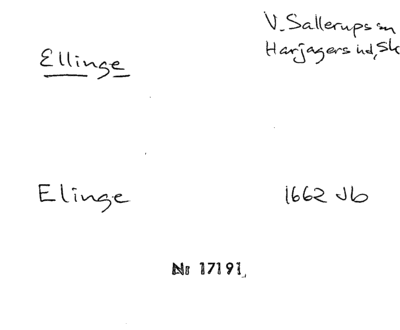 Ellinge
V. Sallerups sn
Harjagers hd, Sk
Elinge
1662 Jb
Nr 17191